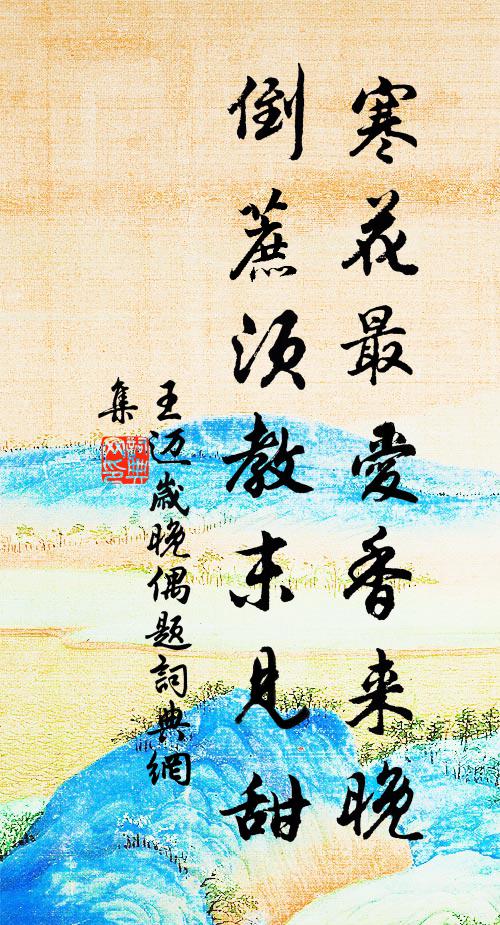 寒花最爱香来晚
倒蔗须教末见甜
王迈歲晚偶题詞典網
集